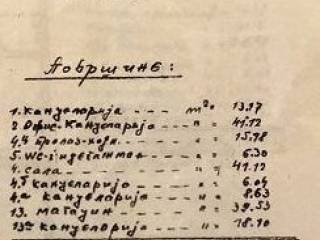 Површине:
1. Канцеларија --- м² 13.17
2 Офис-Канцеларија -- " 41.12
4.4 пролаз-ходн. --- " 15.98
5. WC-i --- " 6.30
4. сала --- " 41.12
4.б канцеларија -- " 6.04
4.а канцеларија -- " 8.63
13. магацин --- " 39.53
13а канцеларија -- " 18.10